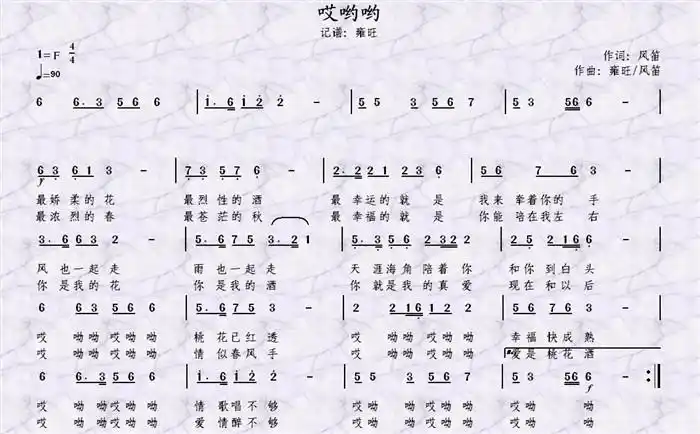 哎哟哟
记谱: 雍旺
1=F 4/4
作词: 风笛
♩=90
作曲: 雍旺/风笛
6 6.3 56 6 | i.6 i2 2 - | 5 5 3.5 6 | 5 3 56 6 - |
63 61 3 - | 73 57 6 - | 2.2 21 23 3 | 56 7 6 3 - |
f
最娇柔的花 最烈性的酒 最幸运的就是 我来牵着你的手
最浓烈的春 最苍茫的秋 最幸福的就是 你能陪在我左右
3.6 63 2 - | 5.6 75 3.2 1 | 5.3 56 232 2 | 25 216 6 - |
风也一起走 雨也一起走 天涯海角陪着你 和你到白头
你是我的花 你是我的酒 你就是我的真爱 现在和以后
6 6.3 56 6 | 5.6 75 3 - | 2 216 2 2 | 56 76 3 - |
哎 呦呦哎呦 呦 桃花已红透 哎 呦呦哎呦呦 幸福快成熟
哎 呦呦哎呦 呦 情似春风手 哎 呦呦哎呦呦 爱是桃花酒
6 6.3 56 6 | i.6 i2 2 - | 5 5 3.5 6 | 5 3 56 6 - :|
f
哎 呦呦哎呦 呦 情歌唱不够 哎 呦 呦哎呦 呦
哎 呦呦哎呦 呦 爱情醉不够 哎 呦 呦哎呦 呦